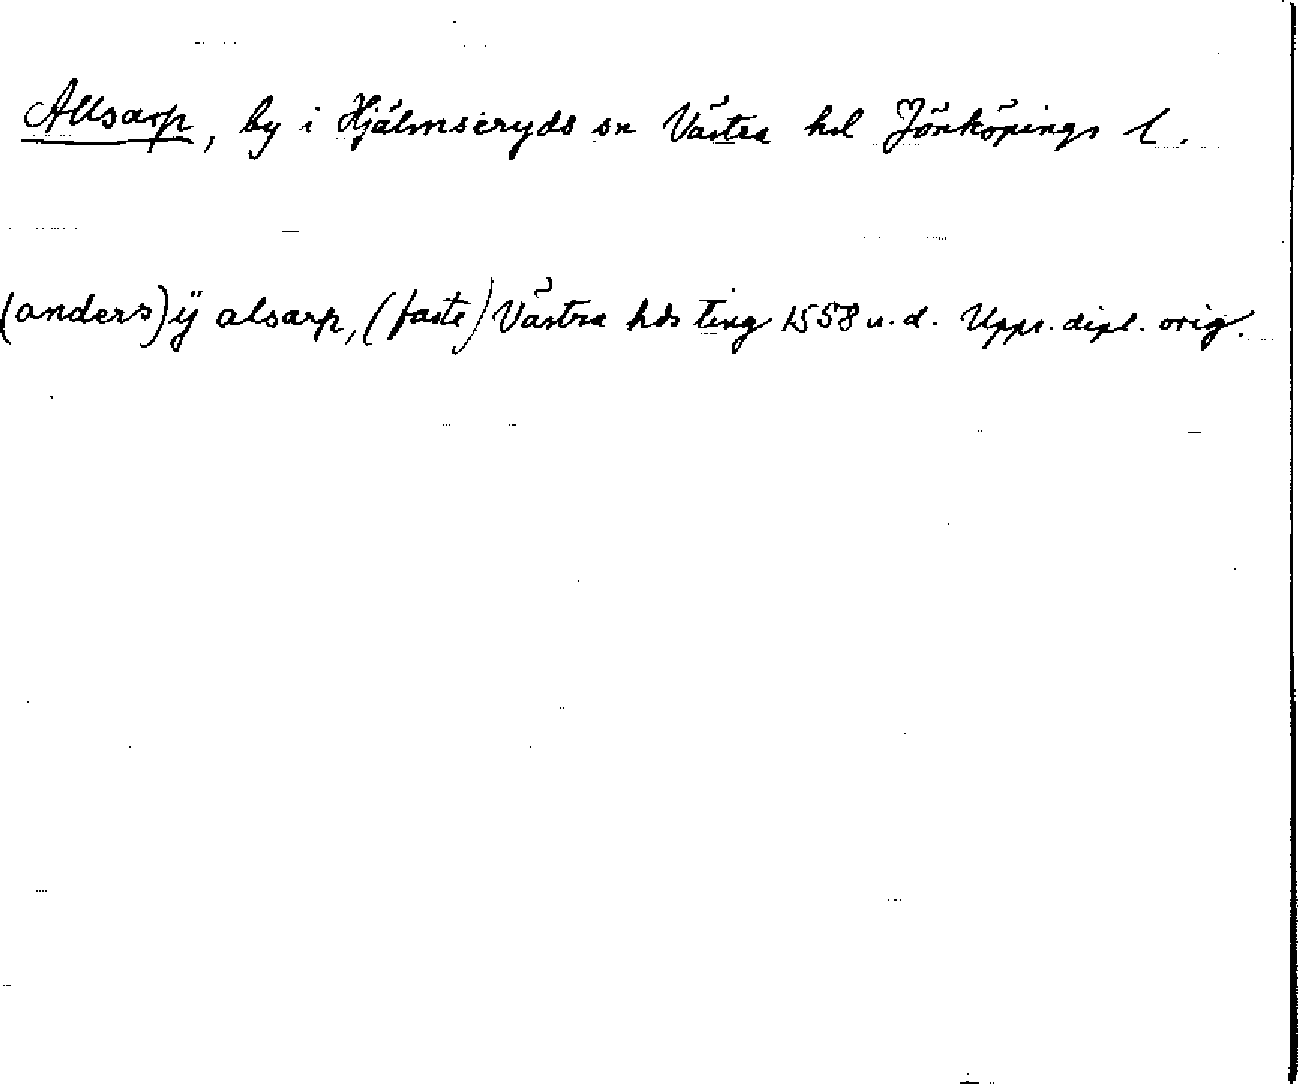 Allsarp, by i Hjälmseryds sn Västra hd Jönköpings l.
(anders) ÿ alsarp, (faste) Västra hds ting 1558 u.d. Upps. dipl. orig.